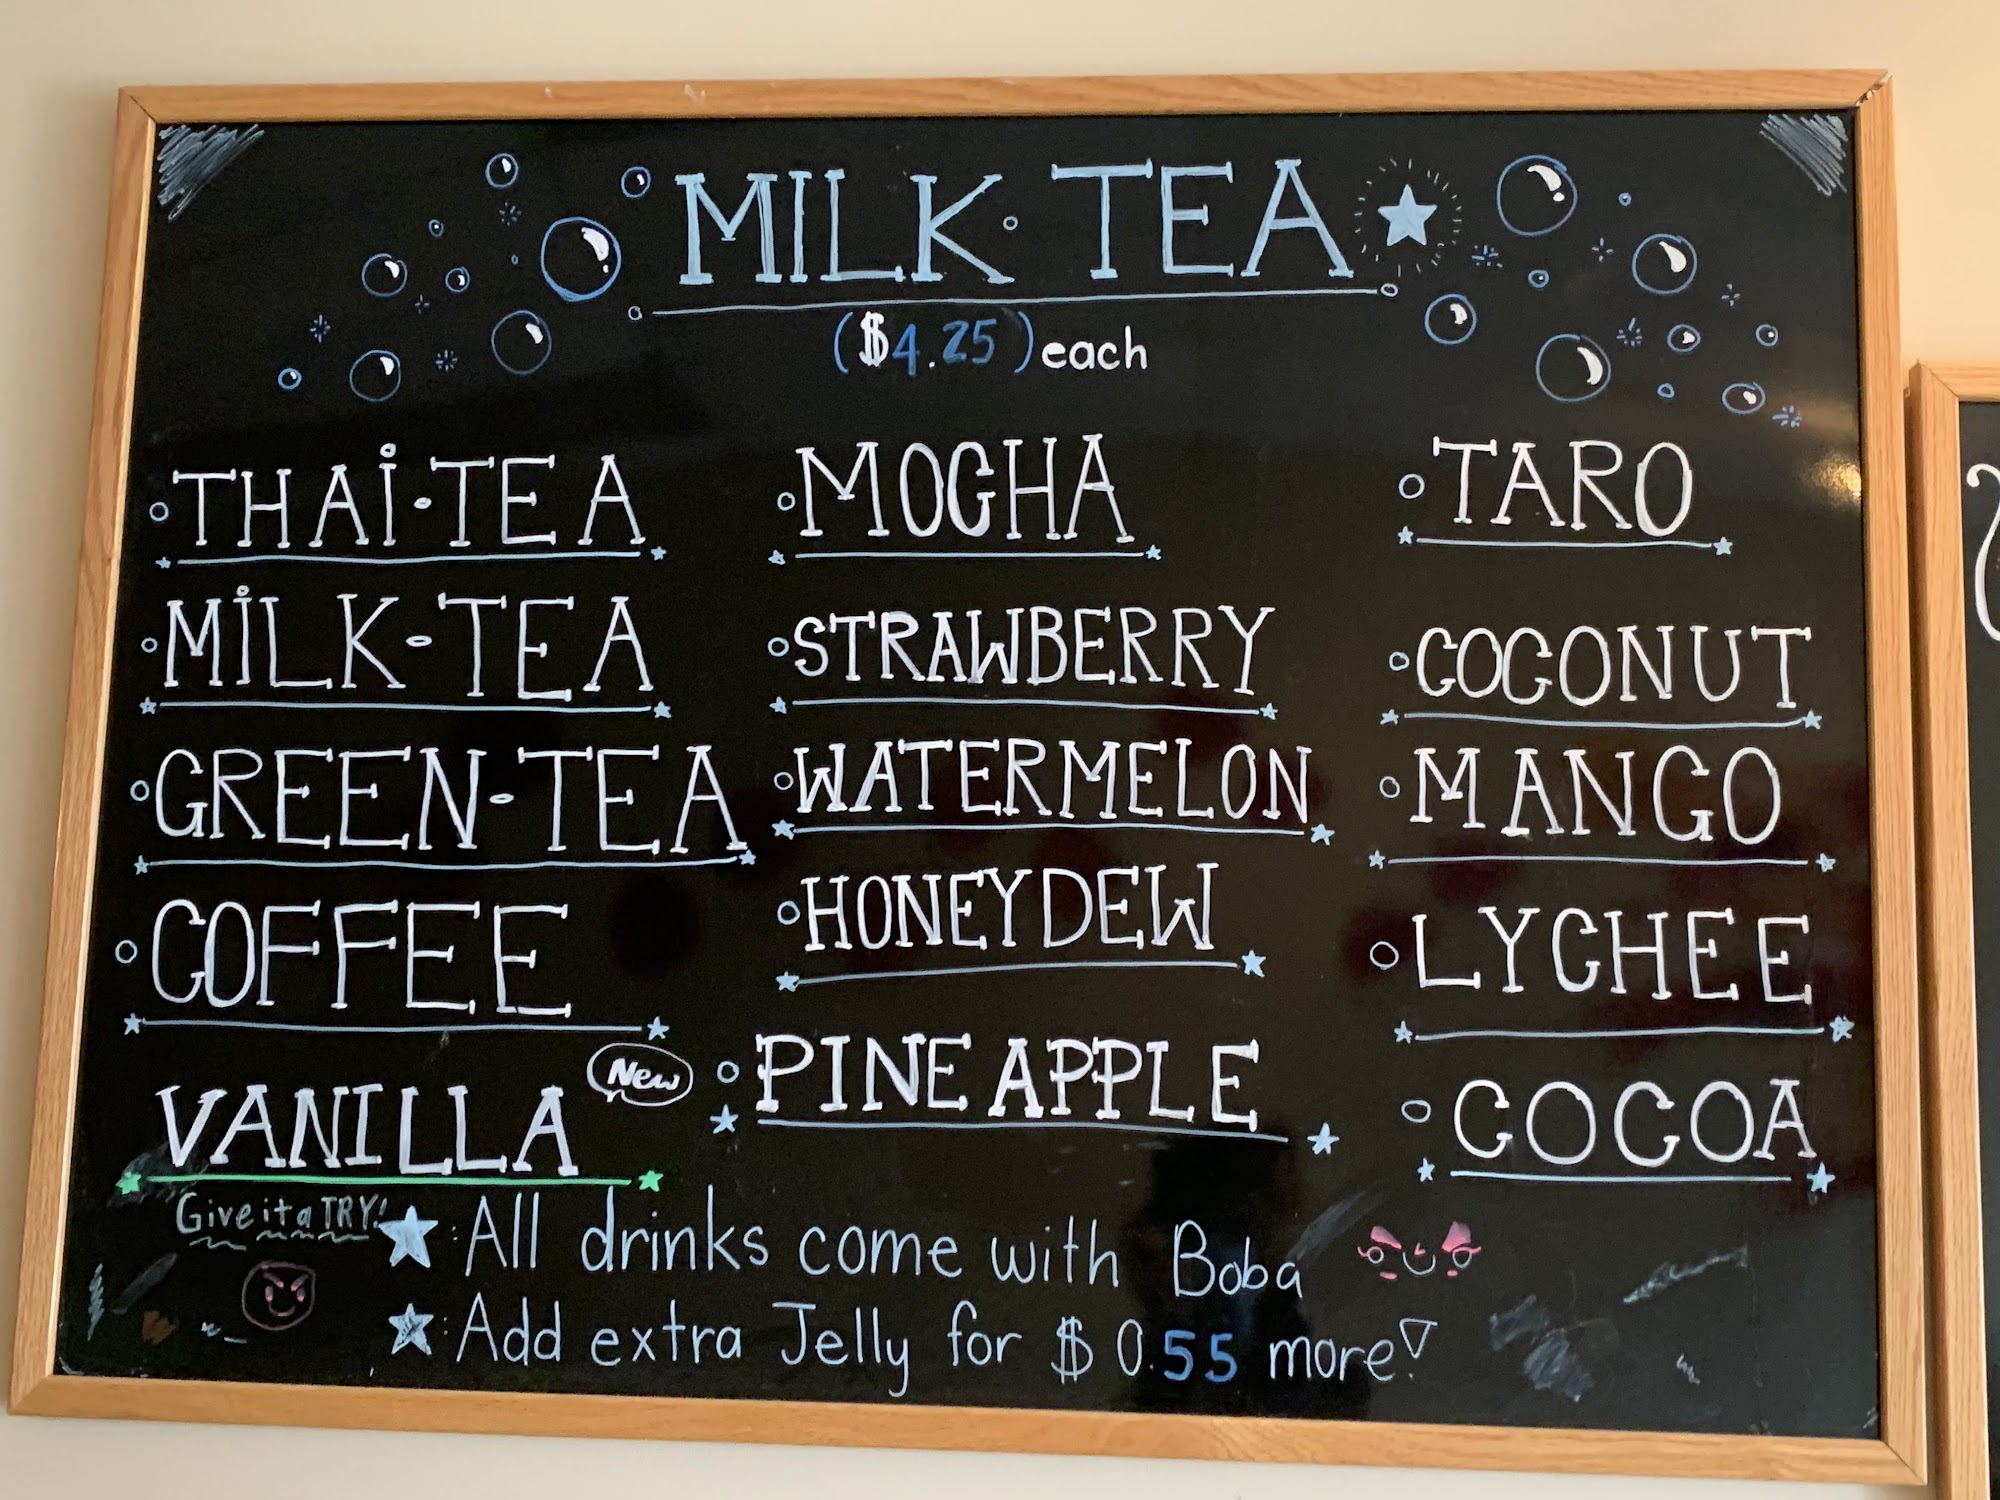 MILK·TEA
($4.25) each
THAI-TEA
MILK-TEA
GREEN-TEA
COFFEE
VANILLA
New
Give it a TRY!
MOCHA
STRAWBERRY
WATERMELON
HONEYDEW
PINEAPPLE
TARO
COCONUT
MANGO
LYCHEE
COCOA
All drinks come with Boba
Add extra Jelly for $0.55 more!